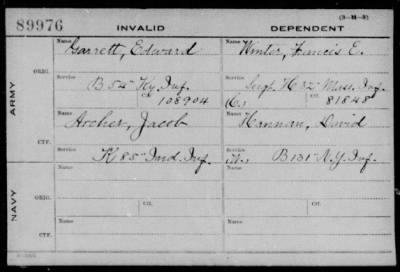 89976 INVALID DEPENDENT (3-M-8)
Name Garrett, Edward Name Winter, Francis E.
ARMY
ORIG.
Service B 54" Ky. Inf. Service Sergt. H 32" Mass. Inf.
Ctf. 108904 Ctf. 81848
Name Archer, Jacob Name Hannan, David
CTF.
Service K 85" Ind. Inf. Service B 131" N.Y. Inf.
Name Name
NAVY
ORIG.
Service Ctf. Service Ctf.
Name Name
CTF.
Service Service